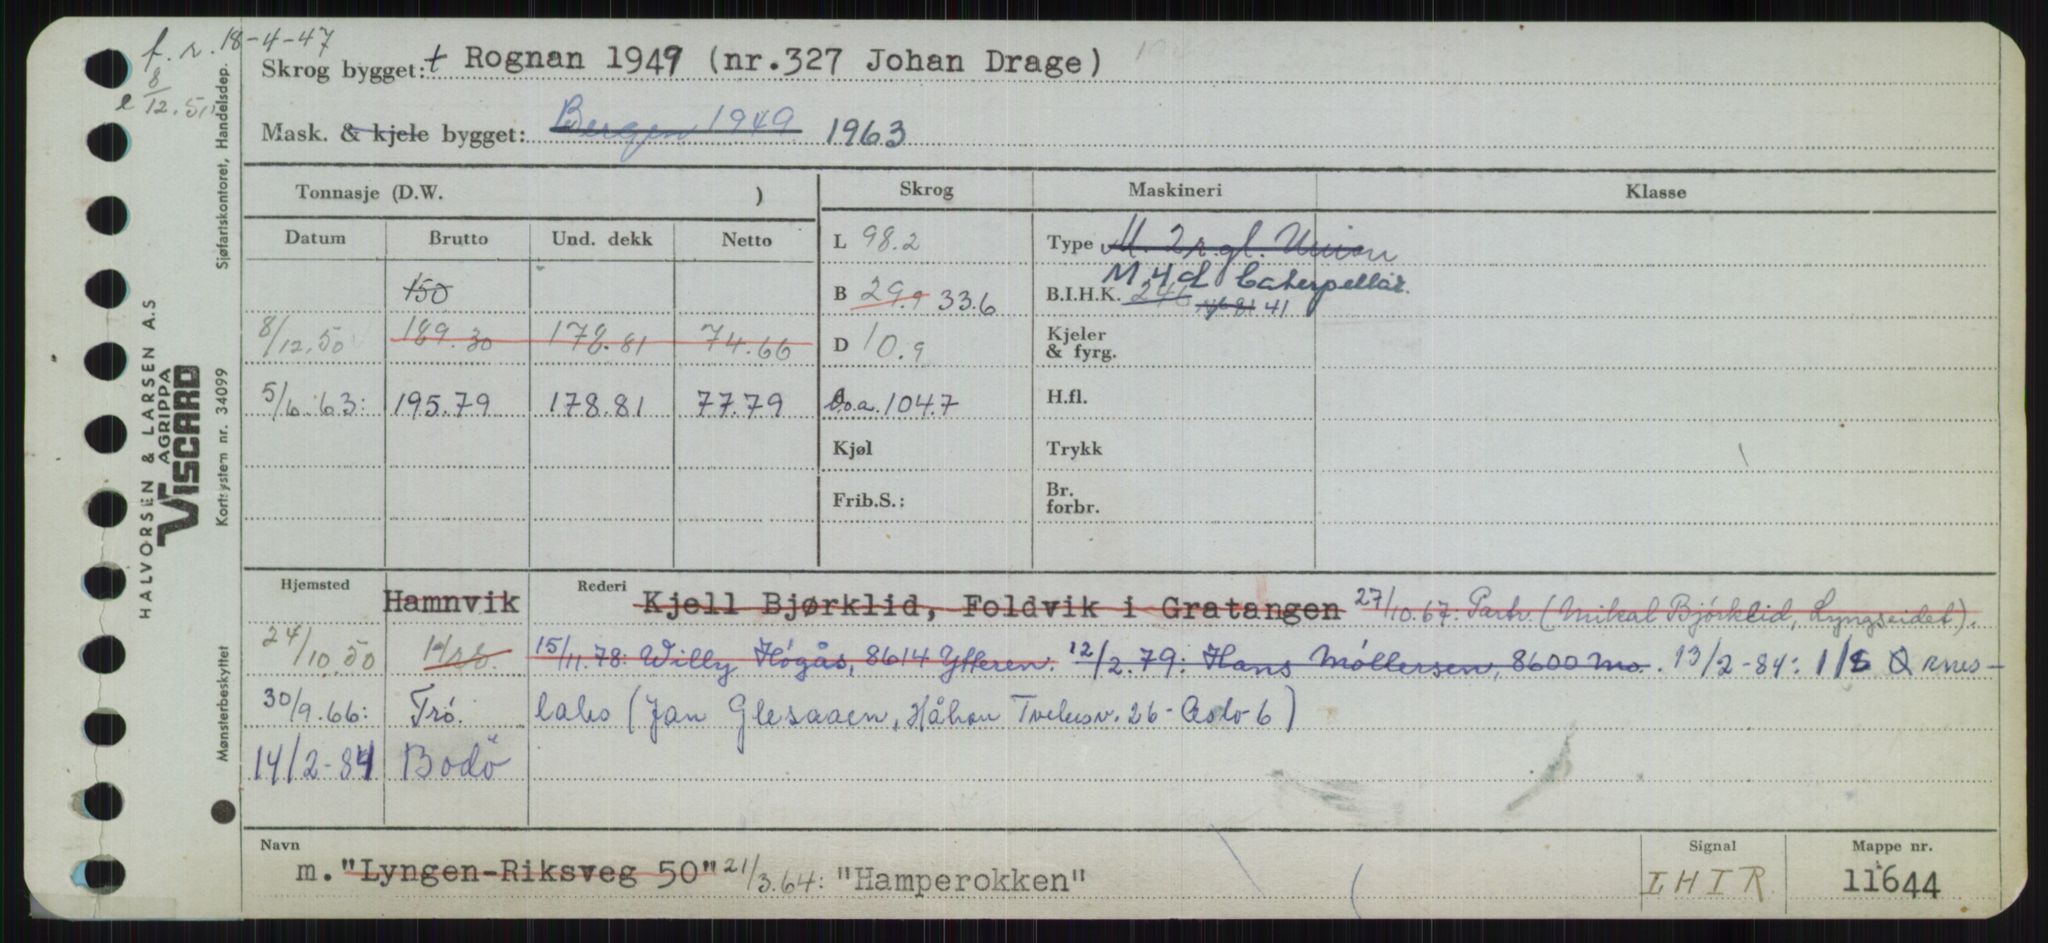 f. r. 18-4-47
8/12.50
Skrog bygget: + Rognan 1949 (nr.327 Johan Drage)
Mask. & kjele bygget: Bergen 1949 1963
Tonnasje (D.W. ) Skrog Maskineri Klasse
Datum Brutto Und. dekk Netto L 98.2 Type M. 2 r.gl. Union
M 4 d Caterpellar.
150 B 29.9 33.6 B.I.H.K. 246 41
8/12.50 189.30 178.81 74.66 D 10.9 Kjeler & fyrg.
5/6.63: 195.79 178.81 77.79 o.a. 104.7 H.fl.
Kjøl Trykk
Frib.S.: Br. forbr.
Hjemsted Hamnvik Rederi Kjell Bjørklid, Foldvik i Gratangen 27/10.67. Partr. (Mikal Bjørklid, Lyngseidet).
24/10 50 15/11.78: Willy Høgås, 8614 Ytteren. 12/2.79: Hans Møllersen, 8600 Mo. 13/2-84: I/S Ørnes-
30/9.66: Trö. laks (Jan Glesaaen, Håkon Tvetersv. 26 - Oslo 6)
14/2-84 Bodö
Navn Signal Mappe nr.
m. "Lyngen-Riksveg 50" 21/3.64: "Hamperokken" LHIR 11644
HALVORSEN & LARSEN A.S
AGRIPPA
VISCARD
Mønsterbeskyttet Kortsystem nr. 34099 Sjøfartskontoret, Handelsdep.